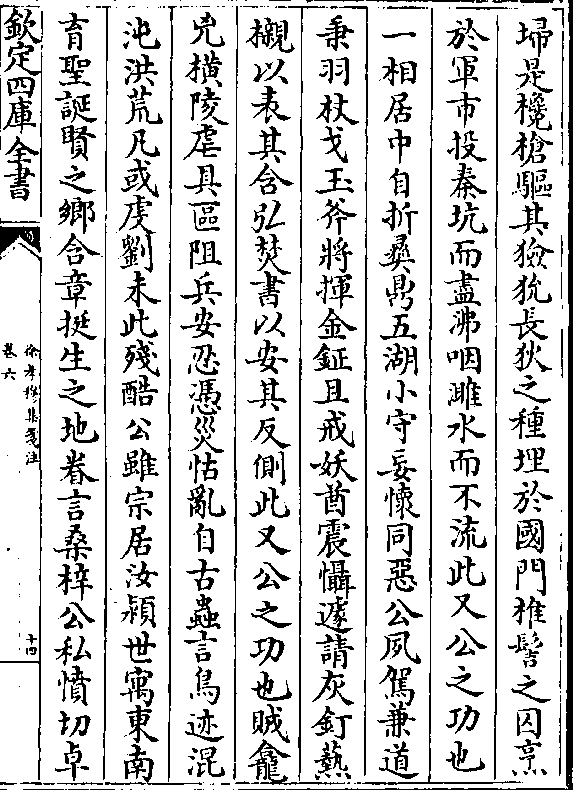 埽是欃槍驅其獫狁長狄之種埋於國門椎髻之囚烹
於軍市投秦坑而盡沸咽雎水而不流此又公之功也
一相居中自折彝鼎五湖小守妄懷同惡公夙駕兼道
秉羽杖戈玉斧將揮金鉦且戒妖酋震懾遽請灰釘爇
櫬以表其含弘焚書以安其反側此又公之功也賊龕
兇橫陵虐具區阻兵安忍憑災怙亂自古蟲言鳥迹混
沌洪荒凡或虔劉未此殘酷公雖宗居汝潁世寓東南
育聖誕賢之鄉含章挺生之地眷言桑梓公私憤切卓
欽定四庫全書
徐孝穆集箋注
卷六
十四